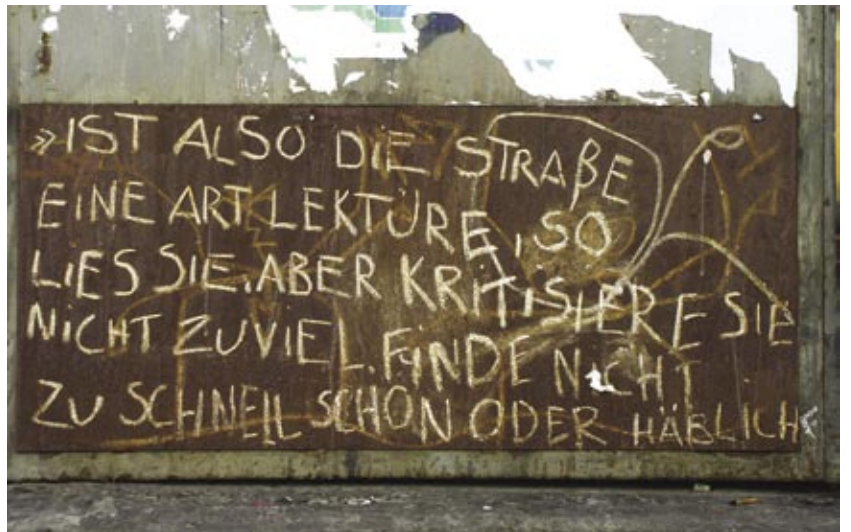 »IST ALSO DIE STRAßE
EINE ART LEKTÜRE, SO
LIES SIE, ABER KRITISIERE SIE
NICHT ZUVIEL. FINDE NICHT
ZU SCHNELL SCHÖN ODER HÄßLICH«